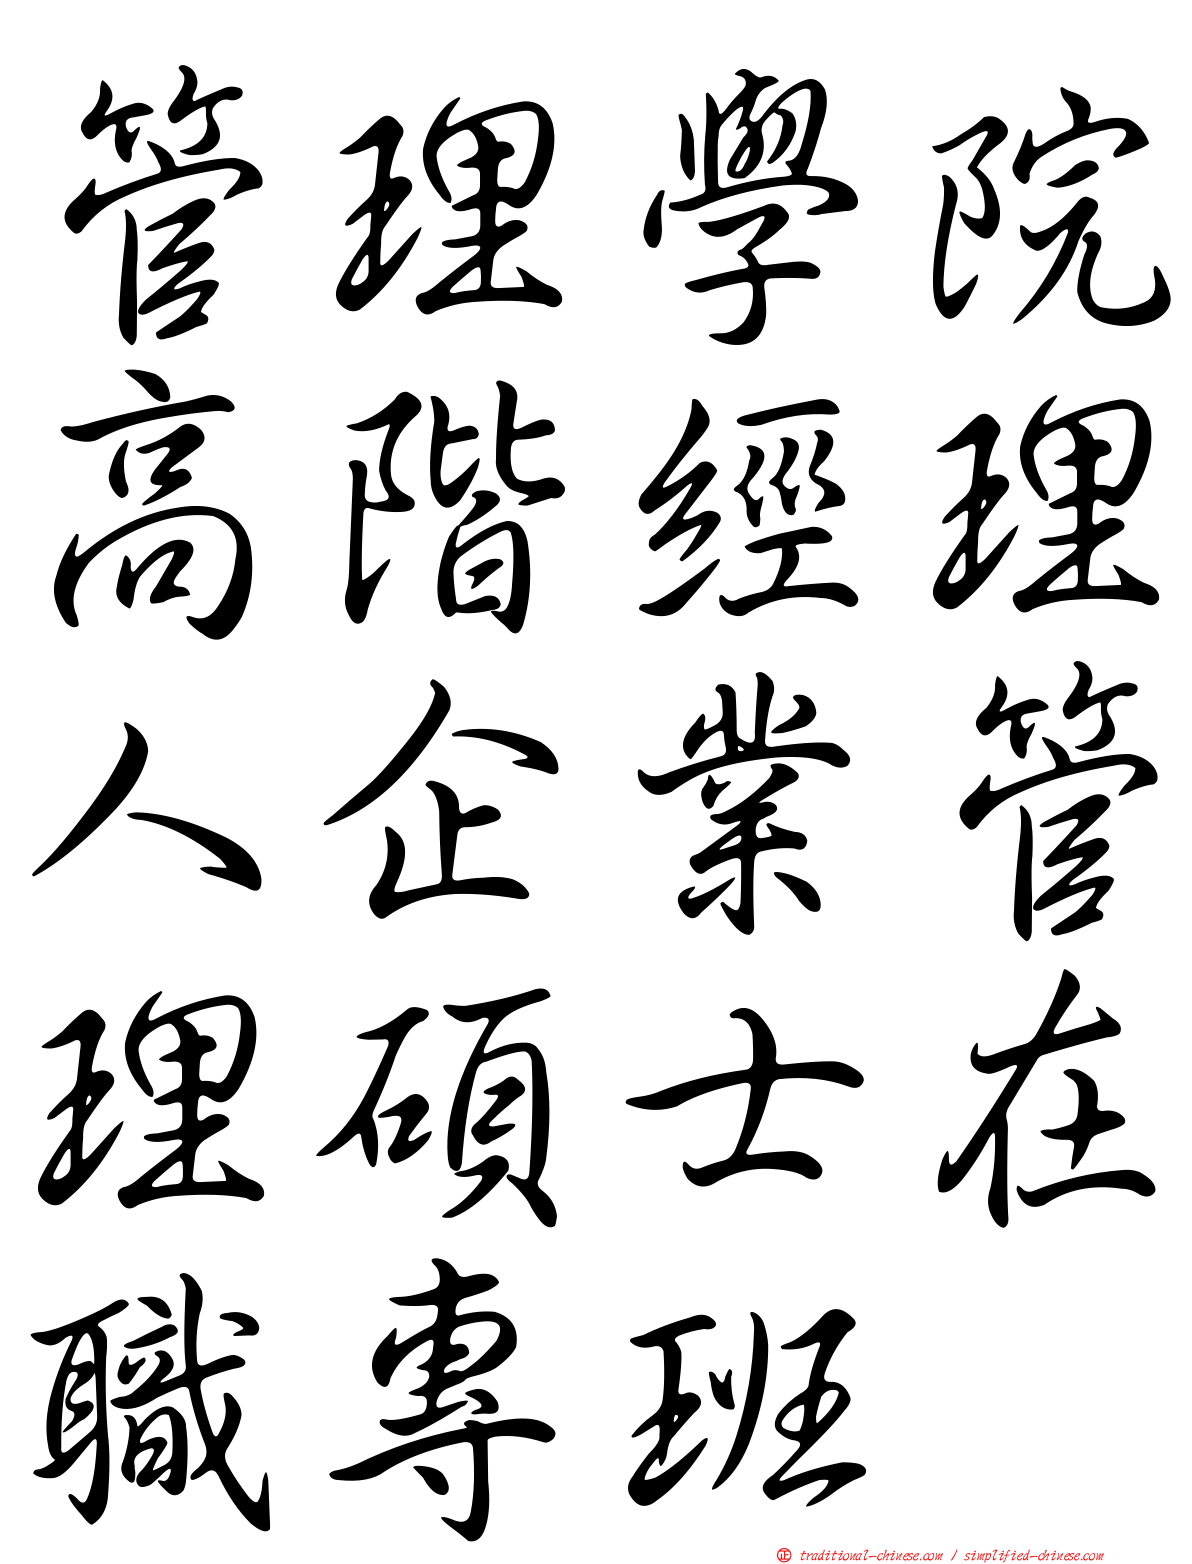 管理學院
高階經理
人企業管
理碩士在
職專班
㊣ traditional-chinese.com / simplified-chinese.com